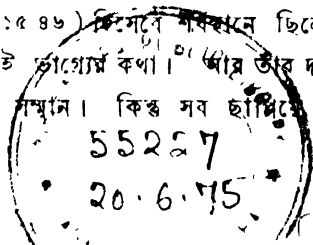 ১৫৪৬) হিসেবে
ই ভাগ্যের কথা। আর তাঁর
সম্মান। কিন্তু সব ছাপিয়ে
55227
20.6.75